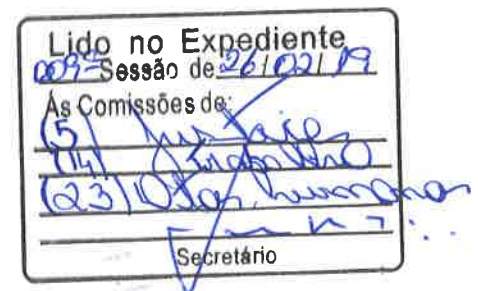 Lido no Expediente
009ª Sessão de 26/02/19
Às Comissões de:
(5) Justiça
(14) Trabalho
(23) Dtos. humanos
Secretário